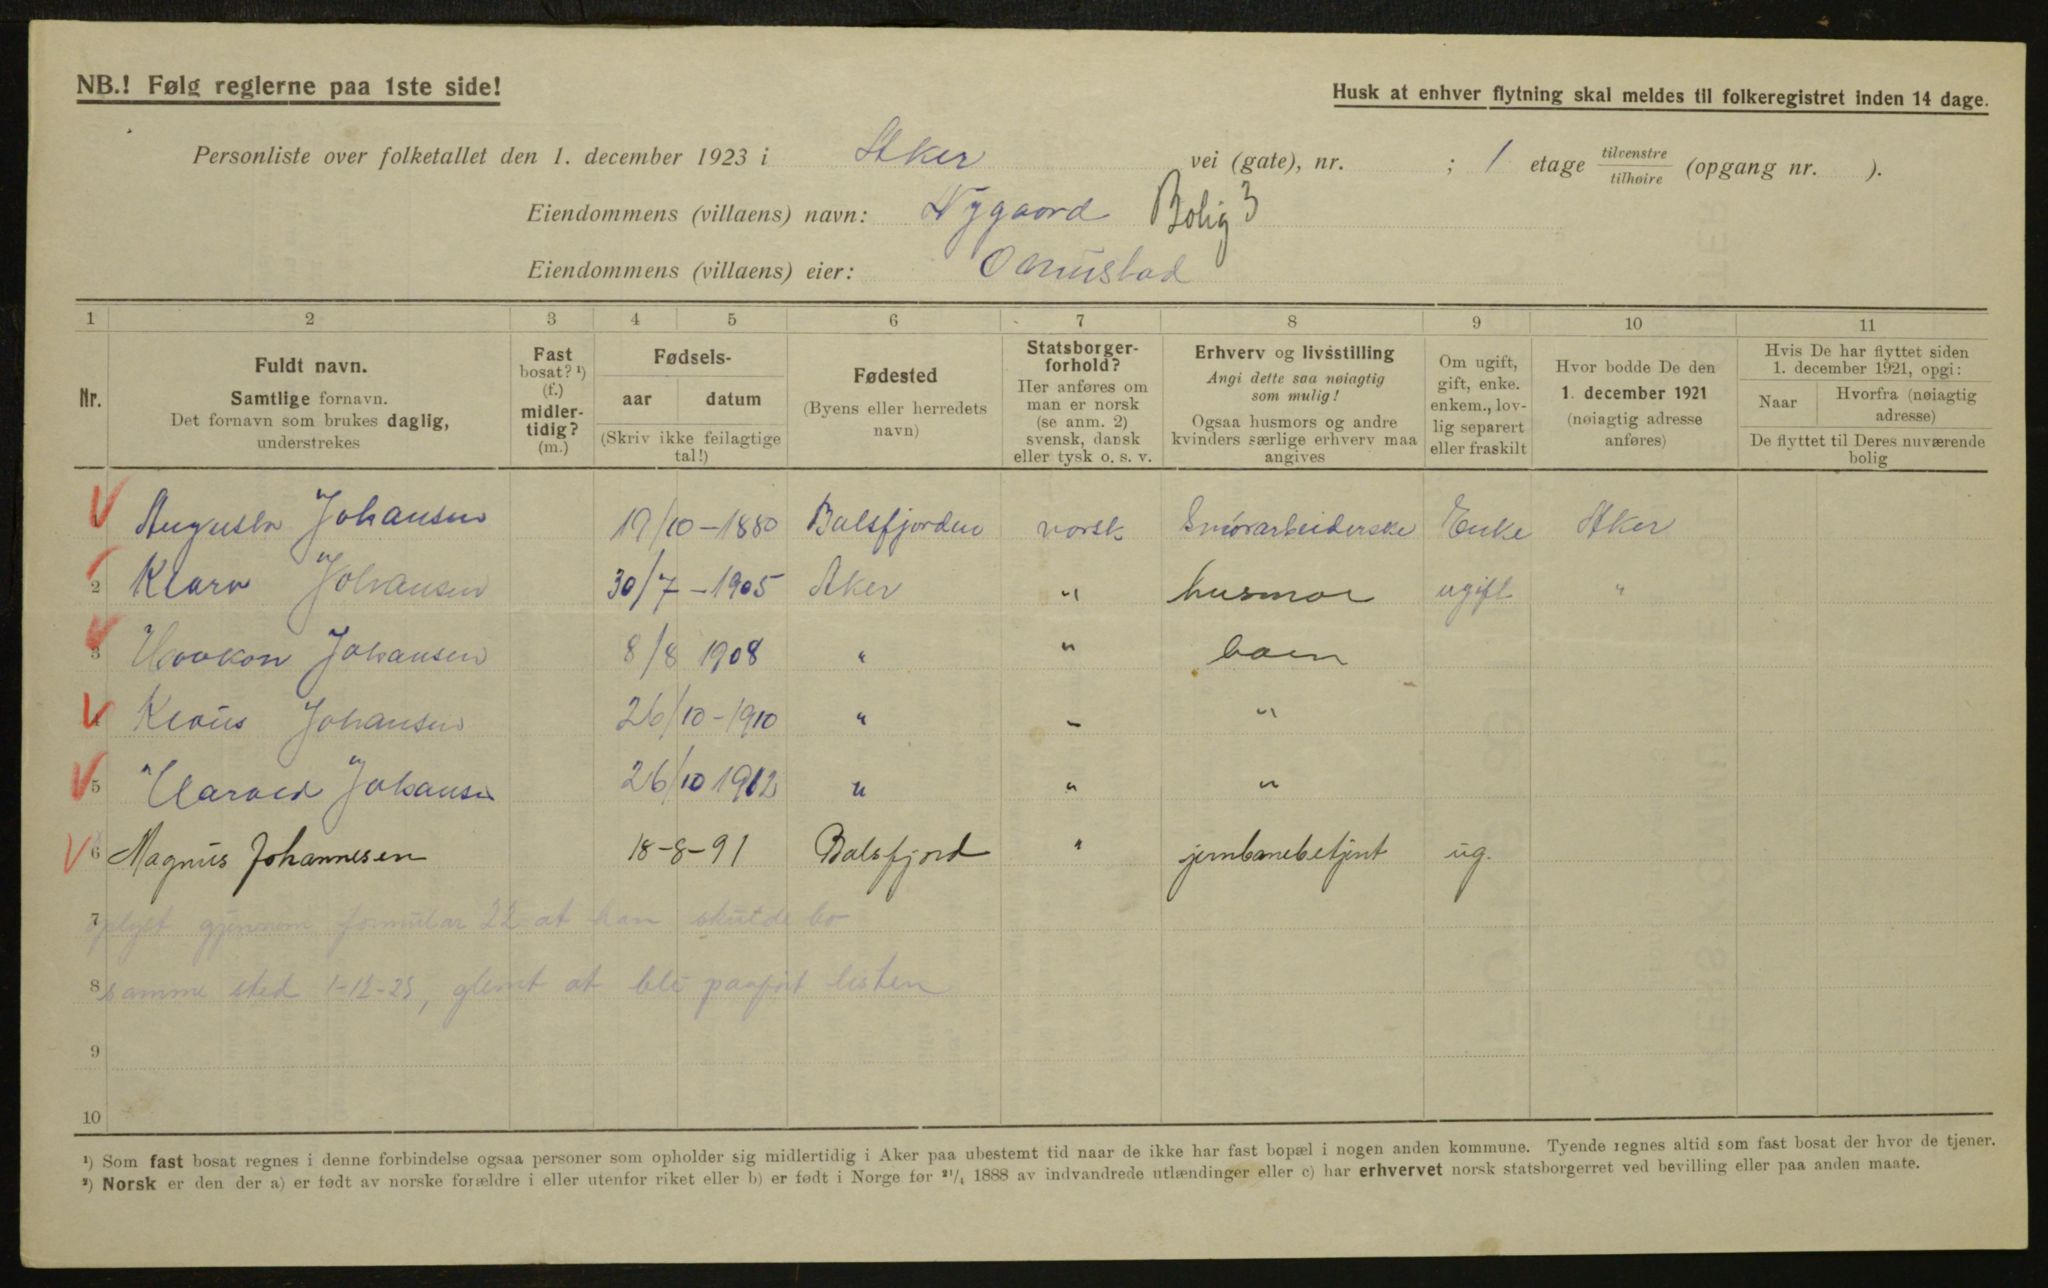 NB.! Følg reglerne paa 1ste side!
Husk at enhver flytning skal meldes til folkeregistret inden 14 dage.
Personliste over folketallet den 1. december 1923 i Aker vei (gate), nr. ; 1 etage tilvenstre tilhøire (opgang nr. ).
Eiendommens (villaens) navn: Nygaard Bolig 3
Eiendommens (villaens) eier: O Mustad
1 2 3 4 5 6 7 8 9 10 11
Nr.
Fuldt navn.
Samtlige fornavn.
Det fornavn som brukes daglig,
understrekes
Fast
bosat? ¹)
(f.)
midler-
tidig?
(m.)
Fødsels-
aar datum
(Skriv ikke feilagtige
tal!)
Fødested
(Byens eller herredets
navn)
Statsborger-
forhold?
Her anføres om
man er norsk
(se anm. 2)
svensk, dansk
eller tysk o. s. v.
Erhverv og livsstilling
Angi dette saa nøiagtig
som mulig!
Ogsaa husmors og andre
kvinders særlige erhverv maa
angives
Om ugift,
gift, enke.
enkem., lov-
lig separert
eller fraskilt
Hvor bodde De den
1. december 1921
(nøiagtig adresse
anføres)
Hvis De har flyttet siden
1. december 1921, opgi:
Naar
Hvorfra (nøiagtig
adresse)
De flyttet til Deres nuværende
bolig
1 Augusta Johansen 19/10-1880 Balsfjorden norsk Smörarbeiderske Enke Aker
2 Klara Johansen 30/7-1905 Aker " husmor ugift "
3 Haakon Johansen 8/8 1908 " " barn
4 Klaus Johansen 26/10-1910 " " "
5 Harald Johansen 26/10 1912 " " "
6 Magnus Johannesen 18-8-91 Balsfjord " jernbanebetjent ug.
7 oplyst gjennem formular 22 at han skulde bo
8 samme sted 1-12-23, glemt at bli paaført listen
9
10
¹) Som fast bosat regnes i denne forbindelse ogsaa personer som opholder sig midlertidig i Aker paa ubestemt tid naar de ikke har fast bopæl i nogen anden kommune. Tyende regnes altid som fast bosat der hvor de tjener.
²) Norsk er den der a) er født av norske forældre i eller utenfor riket eller b) er født i Norge før ²¹/₄ 1888 av indvandrede utlændinger eller c) har erhvervet norsk statsborgerret ved bevilling eller paa anden maate.